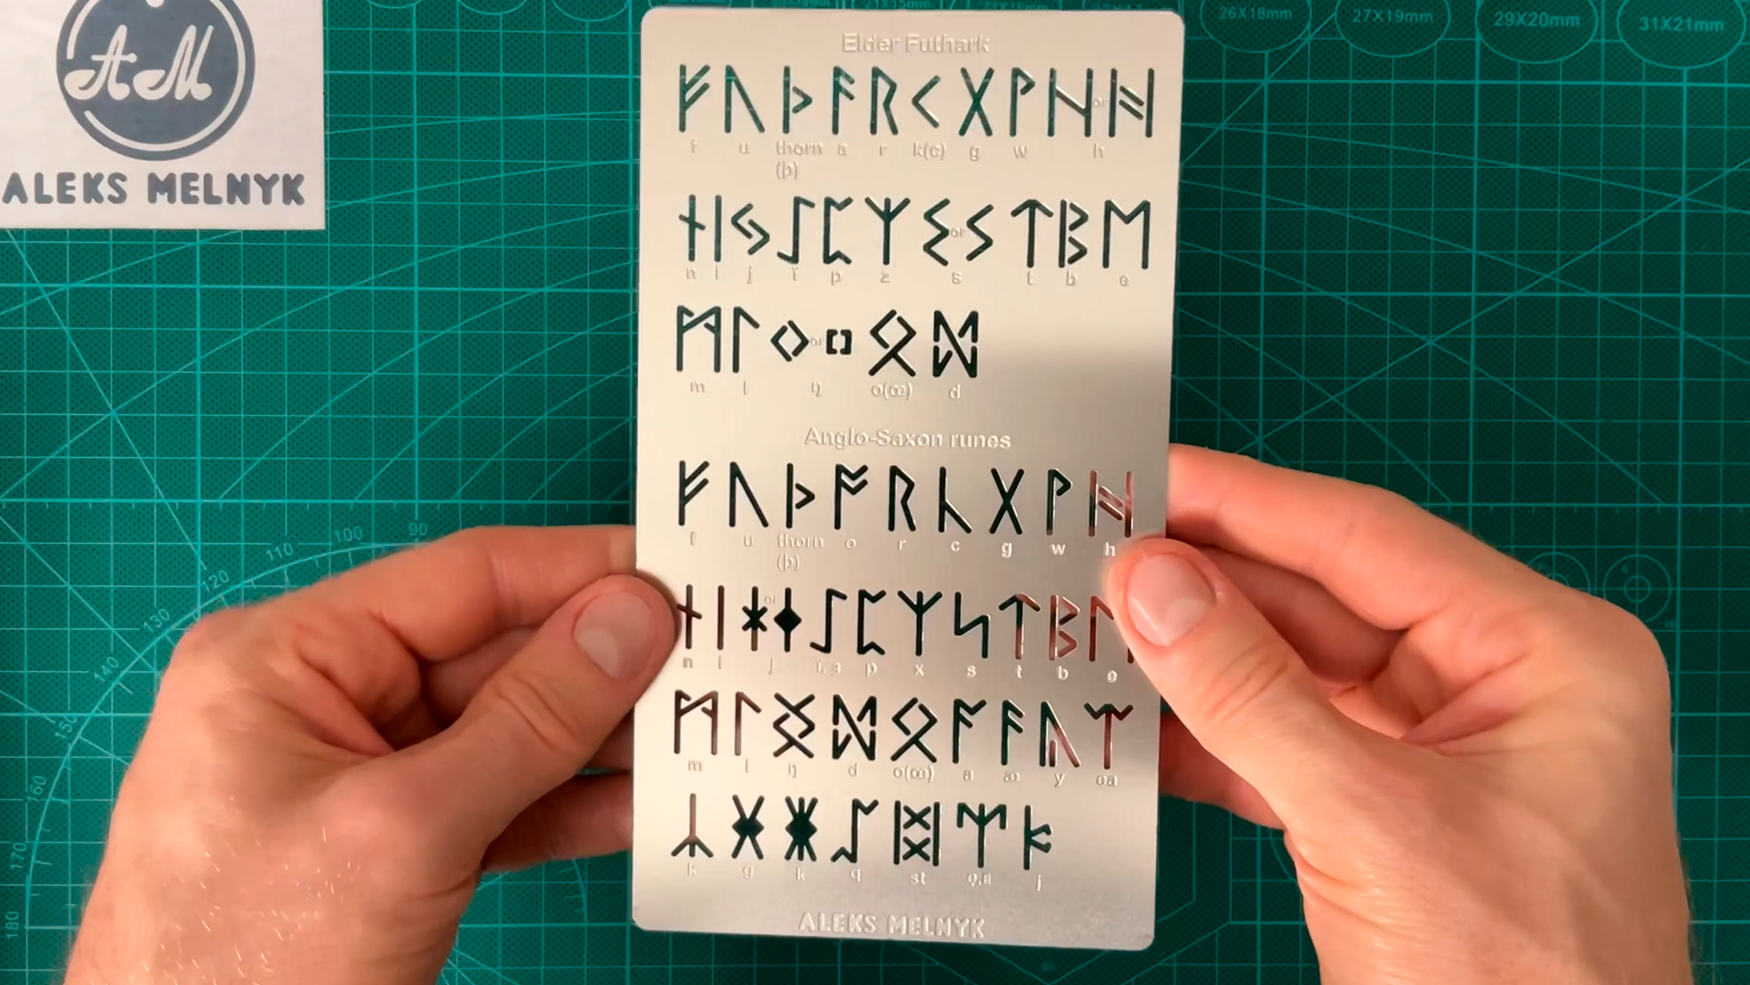 26X18mm 27X19mm 29X20mm 31X21mm
AM
ALEKS MELNYK
Elder Futhark
ᚠ ᚢ ᚦ ᚨ ᚱ ᚲ ᚷ ᚹ ᚺ or ᚻ
f u thorn a r k(c) g w h
(þ)
ᚾ ᛁ ᛃ ᛇ ᛈ ᛉ ᛊ or ᛊ ᛏ ᛒ ᛖ
n i j ï p z s t b e
ᛗ ᛚ ᛜ or ᛜ ᛟ ᛞ
m l ŋ o(œ) d
Anglo-Saxon runes
ᚠ ᚢ ᚦ ᚩ ᚱ ᚳ ᚷ ᚹ ᚻ
f u thorn o r c g w h
(þ)
ᚾ ᛁ ᛡ or ᛄ ᛇ ᛈ ᛉ ᛋ ᛏ ᛒ
n i j p x s t b e
ᛗ ᛚ ᛝ ᛞ ᛟ ᚪ ᚫ ᚣ ᛠ
m l ŋ d o(œ) a æ y ea
ᛣ ᚸ ᛤ ᛢ ᛥ
k g k q st j
ALEKS MELNYK
90
100
110
120
130
140
150
160
170
180